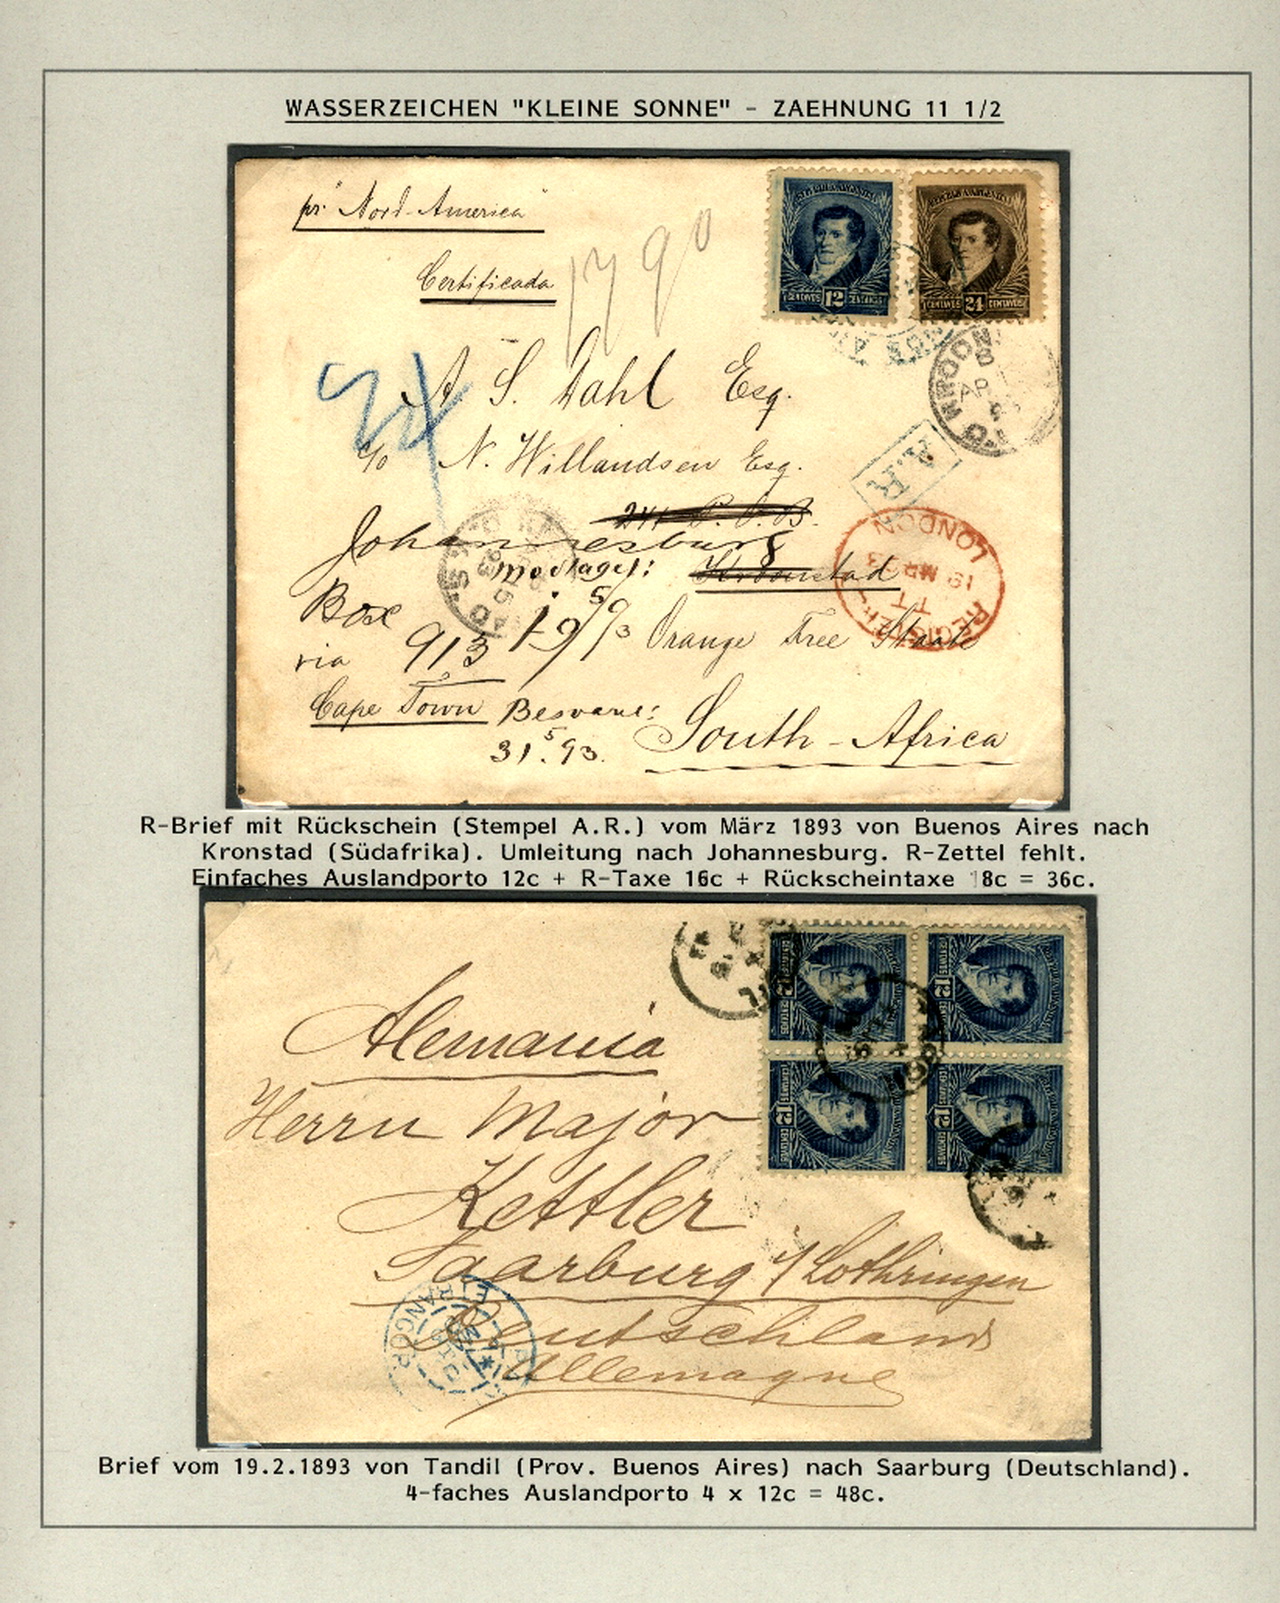 WASSERZEICHEN "KLEINE SONNE" - ZAEHNUNG 11 1/2
pr. Nord-America
Certificada
1790
12 CENTAVOS
24 CENTAVOS
A S. Dahl Esq.
c/o N. Willandsen Esq.
A.R.
241 P.O.B.
Johannesburg
modtaget: Kroonstad
REGISTERED LONDON
19 MR 93
Box 913
1 5/9 93
Orange Free Staate
via
Cape Town
Besvaret:
31.5.93.
South-Africa
R-Brief mit Rückschein (Stempel A.R.) vom März 1893 von Buenos Aires nach
Kronstad (Südafrika). Umleitung nach Johannesburg. R-Zettel fehlt.
Einfaches Auslandporto 12c + R-Taxe 16c + Rückscheintaxe 8c = 36c.
12 CENTAVOS
12 CENTAVOS
12 CENTAVOS
12 CENTAVOS
Alemania
Herrn Major
Kettler
Saarburg i/Lothringen
Deutschland
Allemagne
ETRANGER
Brief vom 19.2.1893 von Tandil (Prov. Buenos Aires) nach Saarburg (Deutschland).
4-faches Auslandporto 4 x 12c = 48c.